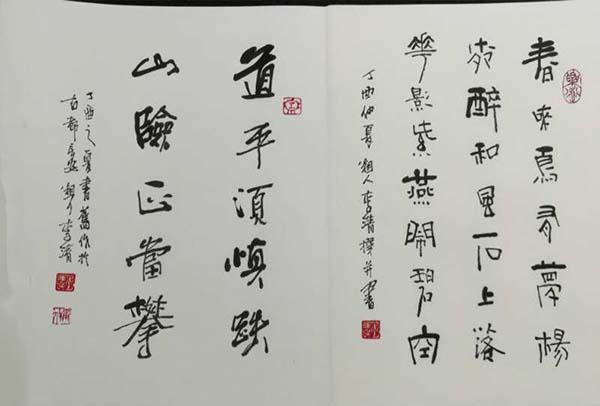 春來鳥夢楊
醉和風石上落
華影紫燕鬧碧空
丁酉仲夏人李撰并書
道平須慎跌
山險正當攀
丁酉之夏書舊作於
古都長安李